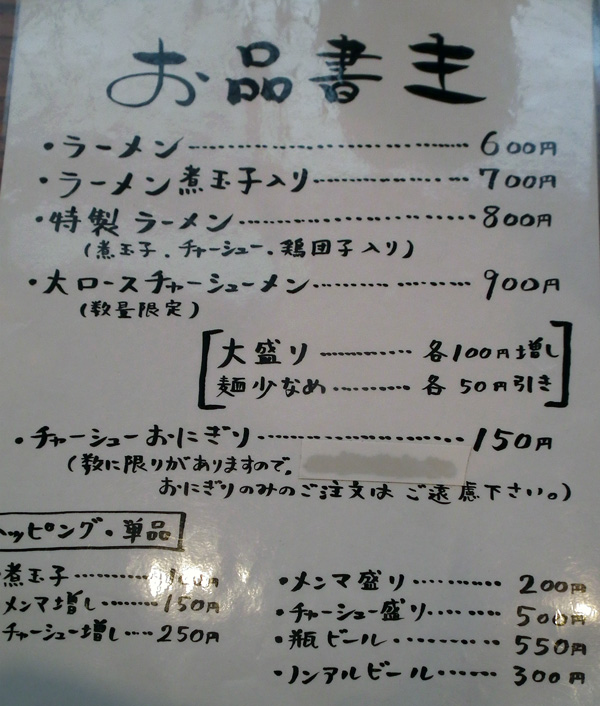 お品書き
・ラーメン 600円
・ラーメン煮玉子入り 700円
・特製ラーメン 800円
(煮玉子.チャーシュー.鶏団子入り)
・大ロースチャーシューメン 900円
(数量限定)
大盛り 各100円増し
麺少なめ 各50円引き
・チャーシューおにぎり 150円
(数に限りがありますので、
おにぎりのみのご注文はご遠慮下さい。)
トッピング・単品
煮玉子 100円
メンマ増し 150円
チャーシュー増し 250円
・メンマ盛り 200円
・チャーシュー盛り 500円
・瓶ビール 550円
・ノンアルビール 300円